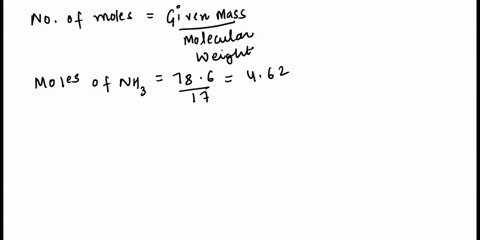 No. of moles = Given Mass
Molecular
Weight
Moles of NH3 = 78.6 = 4.62
17